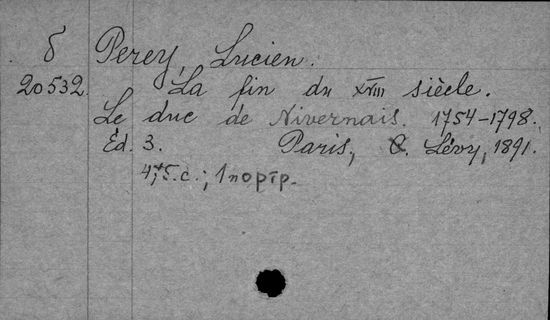 δ Perey, Lucien.
20532. La fin du XVIII siècle.
Le duc de Nivernais. 1754-1798.
Éd. 3. Paris, C. Lévy, 1891.
1 портр.